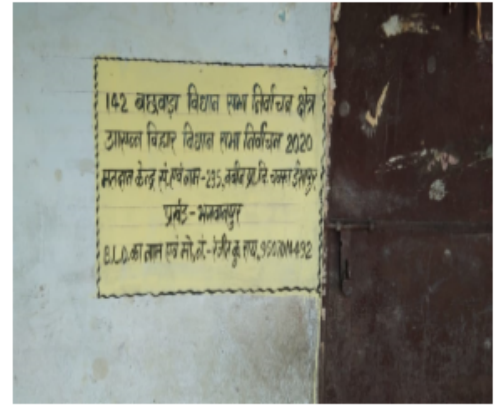 142 बछवाड़ा विधान सभा निर्वाचन क्षेत्र
आसन्न बिहार विधान सभा निर्वाचन 2020
मतदान केन्द्र सं. एवं नाम-295, नवीन प्रा. वि. चक्का
प्रखंड-भगवानपुर
B.L.O. का नाम एवं मो. नं.-